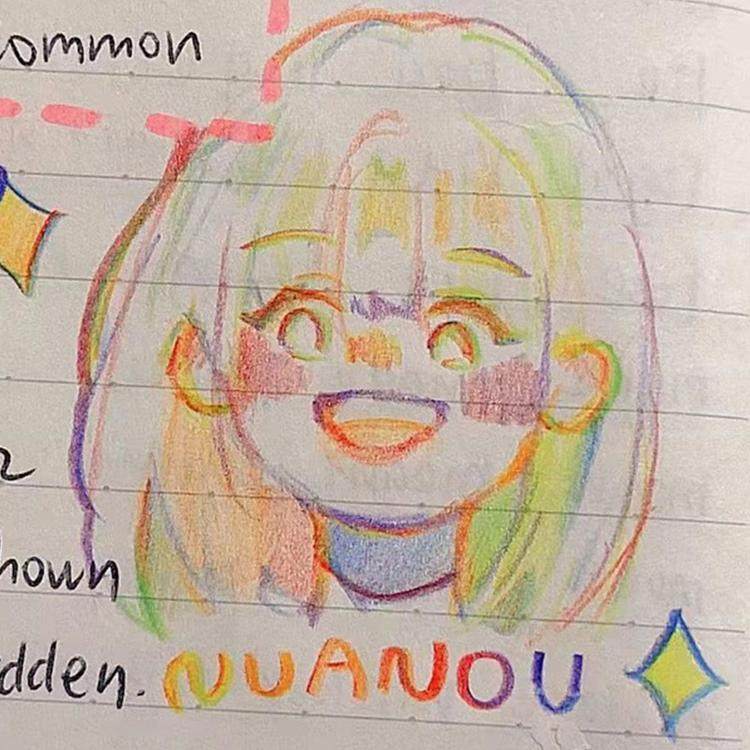 ommon
hown
dden.
NUANOU